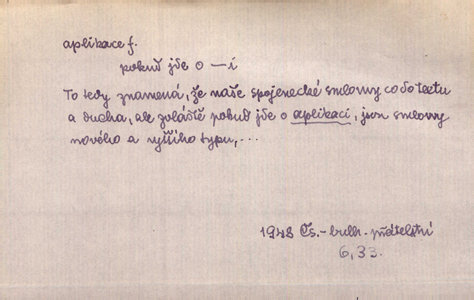 aplikace f.
pokud jde o —i
To tedy znamená, že naše spojenecké smlouvy co do textu
a ducha, ale zvláště pokud jde o aplikaci, jsou smlouvy
nového a vyššího typu, ...
1948 Čs.-bulh. přátelství
6,33.